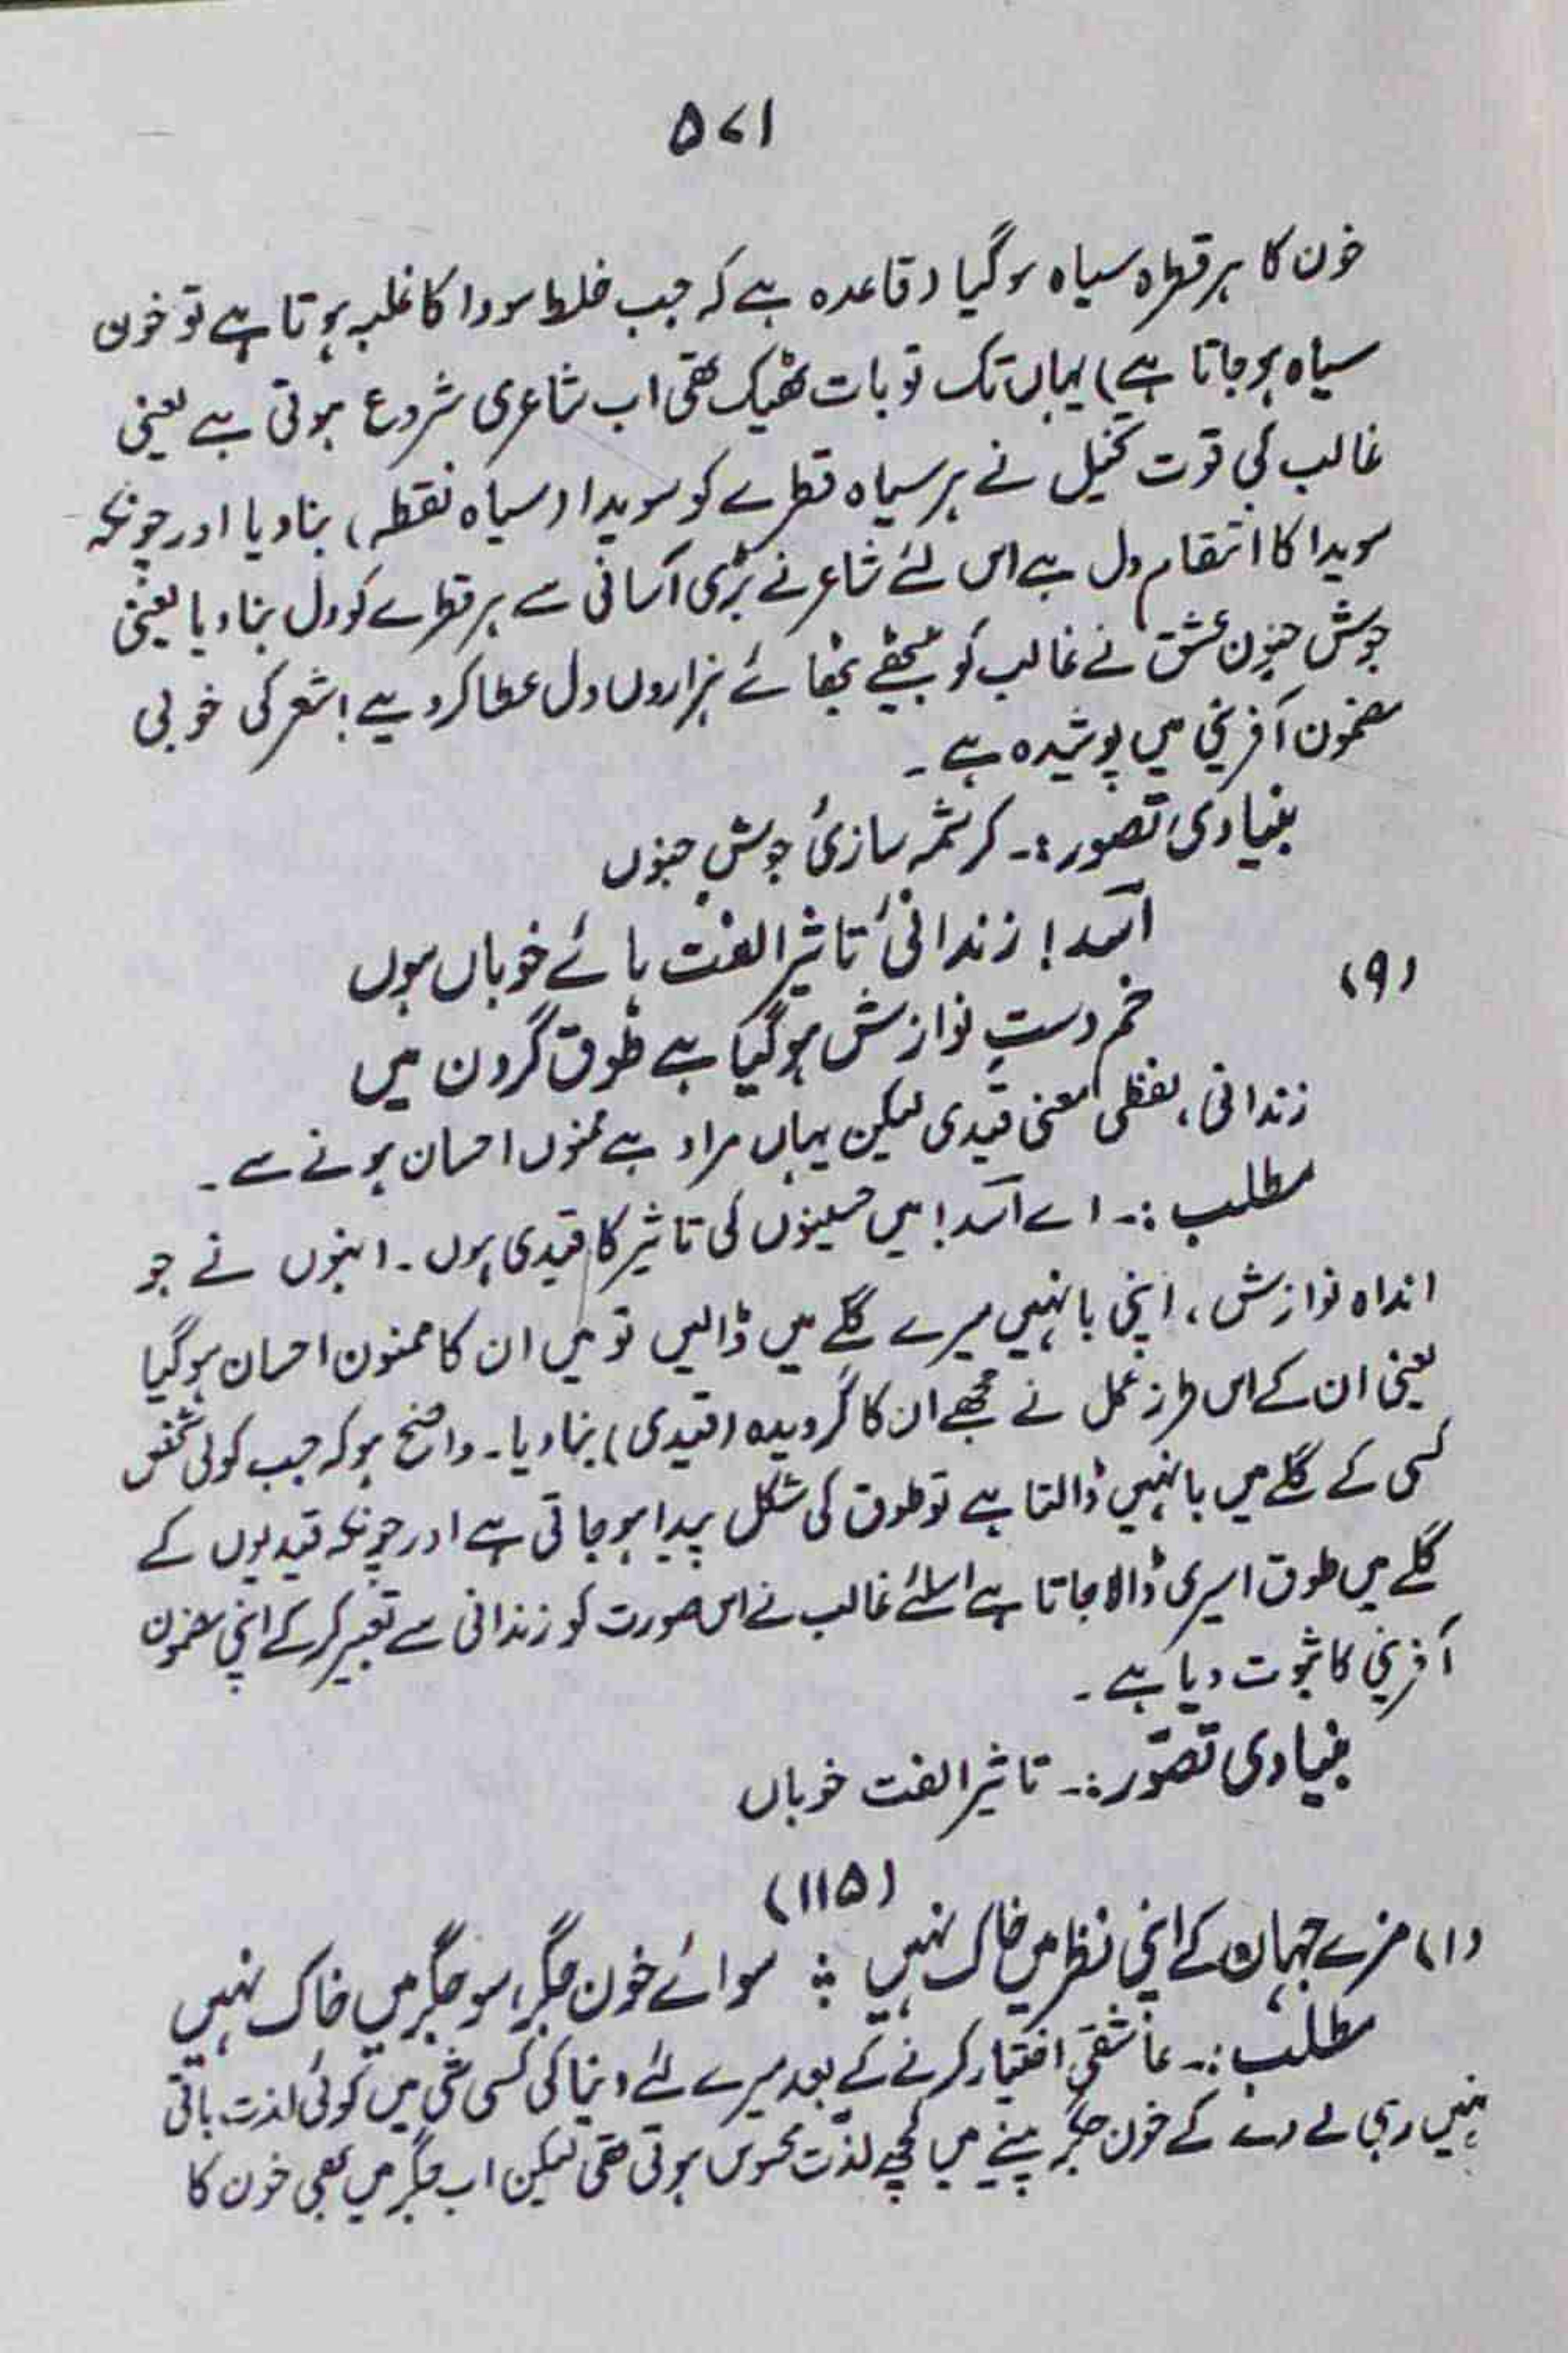 ۵۷۱
خون کا ہر قطرہ سیاہ ہوگیا (قاعدہ ہے کہ جب خلط سودا کا غلبہ ہوتا ہے تو خون
سیاہ ہوجاتا ہے) یہاں تک تو بات ٹھیک تھی اب شاعری شروع ہوتی ہے یعنی
غالب کی قوت تخیل نے ہر سیاہ قطرے کو سویدا (سیاہ نقطہ) بنادیا اور چونکہ
سویدا کا انتقام دل ہے اس لئے شاعر نے بڑی آسانی سے ہر قطرے کو دل بنادیا یعنی
جوش جنون عشق نے غالب کو بیٹھے بٹھائے ہزاروں دل عطا کردیے! شعر کی خوبی
مضمون آفرینی میں پوشیدہ ہے۔
بنیادی تصور:۔ کرشمہ سازئ جوشِ جنوں
(۹) اسدؔ! زندانئ تاثیر الفت ہائے خوباں ہوں
خم دستِ نوازش ہوگیا ہے طوق گردن میں
زندانی، لفظی معنی قیدی لیکن یہاں مراد ہے ممنوں احسان ہونے سے۔
مطلب:۔ اے اسدؔ! میں حسینوں کی تاثیر کا قیدی ہوں۔ انہوں نے جو
انداہ نوازش، اپنی بانہیں میرے گلے میں ڈالیں تو میں ان کا ممنون احسان ہوگیا
یعنی ان کے اس طرز عمل نے مجھے ان کا گرویدہ (قیدی) بنادیا۔ واضح ہو کہ جب کوئی شخص
کسی کے گلے میں بانہیں ڈالتا ہے تو طوق کی شکل پیدا ہوجاتی ہے اور چونکہ قیدیوں کے
گلے میں طوق اسیری ڈالا جاتا ہے اسلئے غالب نے اس صورت کو زندانی سے تعبیر کرکے اپنی مضمون
آفرینی کا ثبوت دیا ہے۔
بنیادی تصوّر:۔ تاثیر الفت خوباں
(۱۱۵)
(۱) مزے جہان کے اپنی نظر میں خاک نہیں ؛ سوائے خون جگر، سو جگر میں خاک نہیں
مطلب:۔ عاشقی اختیار کرنے کے بعد میرے لئے دنیا کی کسی شی میں کوئی لذت باقی
نہیں رہی لے دے کے خون جگر پینے میں کچھ لذّت محسوس ہوتی تھی لیکن اب جگر میں بھی خون کا